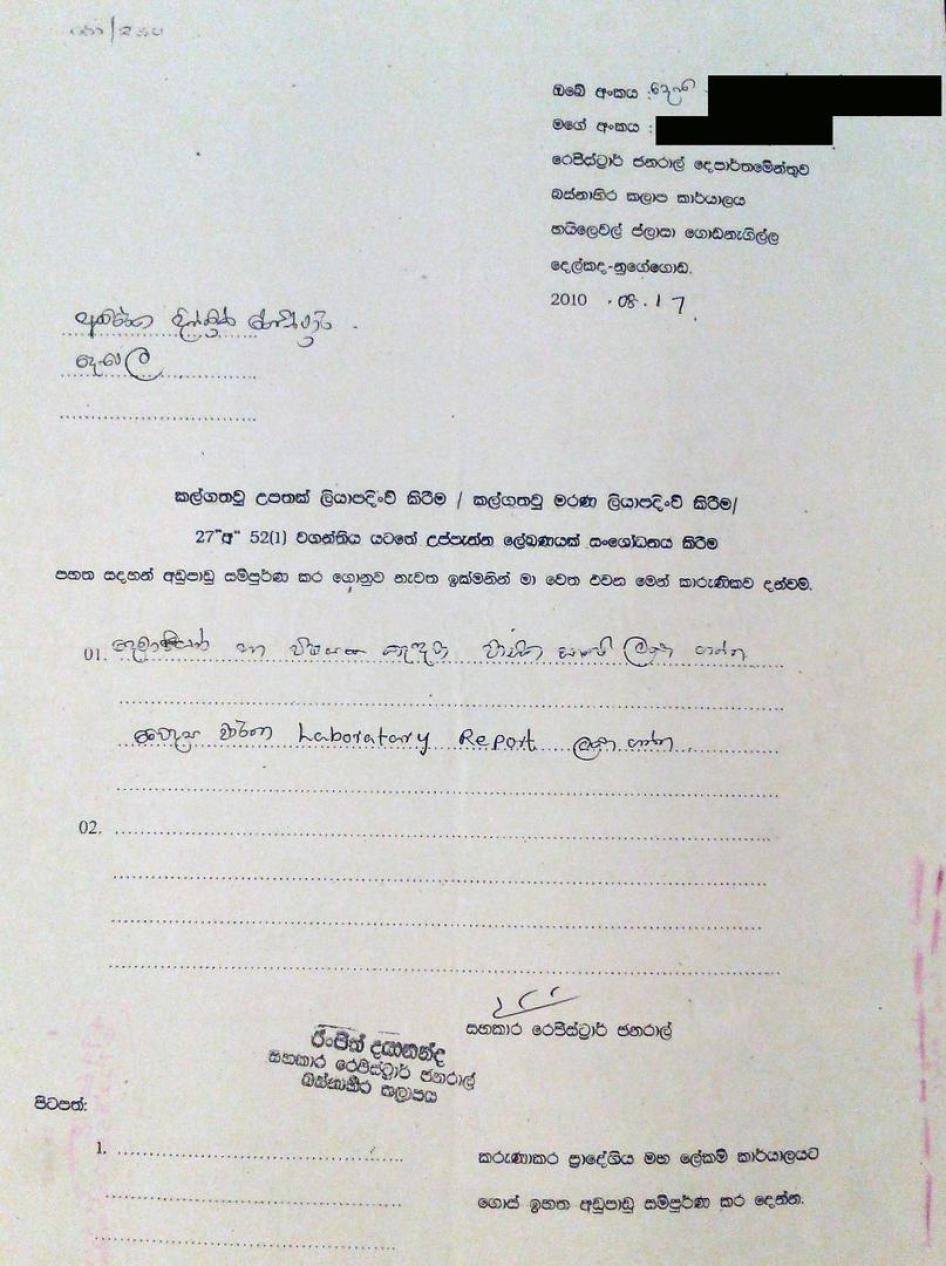 ඔබේ අංකය :
මගේ අංකය :
රෙජිස්ට්‍රාර් ජනරාල් දෙපාර්තමේන්තුව
බස්නාහිර කලාප කාර්යාලය
හයිලෙවල් ප්ලාසා ගොඩනැගිල්ල
දෙල්කද-නුගේගොඩ.
2010 .08.17.
කල්ගතවූ උපතක් ලියාපදිංචි කිරීම / කල්ගතවූ මරණ ලියාපදිංචි කිරීම/
27"අ" 52(1) වගන්තිය යටතේ උප්පැන්න ලේඛණයක් සංශෝධනය කිරීම
පහත සඳහන් අඩුපාඩු සම්පුර්ණ කර ගොනුව නැවත ඉක්මනින් මා වෙත එවන මෙන් කාරුණිකව දන්වම.
01. හා
Laboratory Report ලබා ගන්න
02.
සහකාර රෙජිස්ට්‍රාර් ජනරාල්
රංජිත් දයානන්ද
සහකාර රෙජිස්ට්‍රාර් ජනරාල්
බස්නාහිර කලාපය
පිටපත්:
1.
කරුණාකර ප්‍රාදේශිය මහ ලේකම් කාර්යාලයට
ගොස් ඉහත අඩුපාඩු සම්පුර්ණ කර දෙන්න.